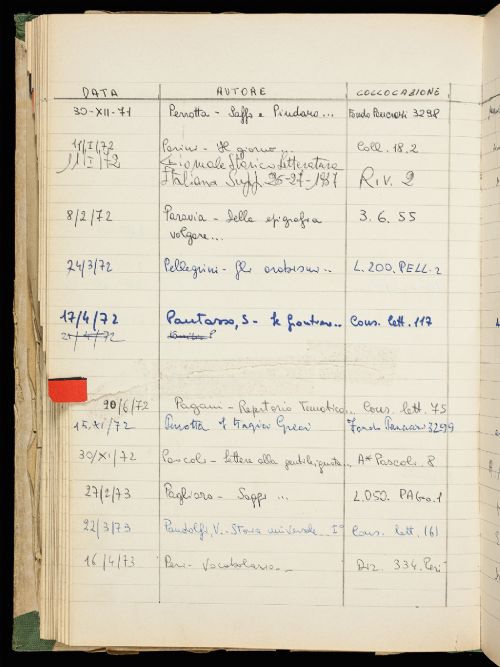 DATA AUTORE COLLOCAZIONE
30-XII-71 Perrotta - Saffo e Pindaro... Fondo Pancrazi 3298
11/I/72 Parini - Il giorno... Coll. 18.2
11/1/72 Giornale Storico Letteratura
Italiana Suppl. 26-27-1937 Riv. 2
8/2/72 Paravia - Della epigrafia 3. 6. 55
volgare...
24/3/72 Pellegrini - Gli arabismi... L. 200. PELL. 2
17/4/72 Pautasso, S - Le frontiere... Cons. lett. 117
21/4/72
20/6/72 Pagani - Repertorio Tematico... Cons. lett. 75
15/XI/72 Perrotta I tragici Greci Fondo Pancrazi 3299
30/XI/72 Pascoli - Lettere alla gentile ignota... A* Pascoli. 8
27/2/73 Pagliaro - Saggi ... L.050. PAG.1
22/3/73 Pandolfi, V. - Storia universale... I° Cons. lett. 161
16/4/73 - Vocabolario... Diz. 334.